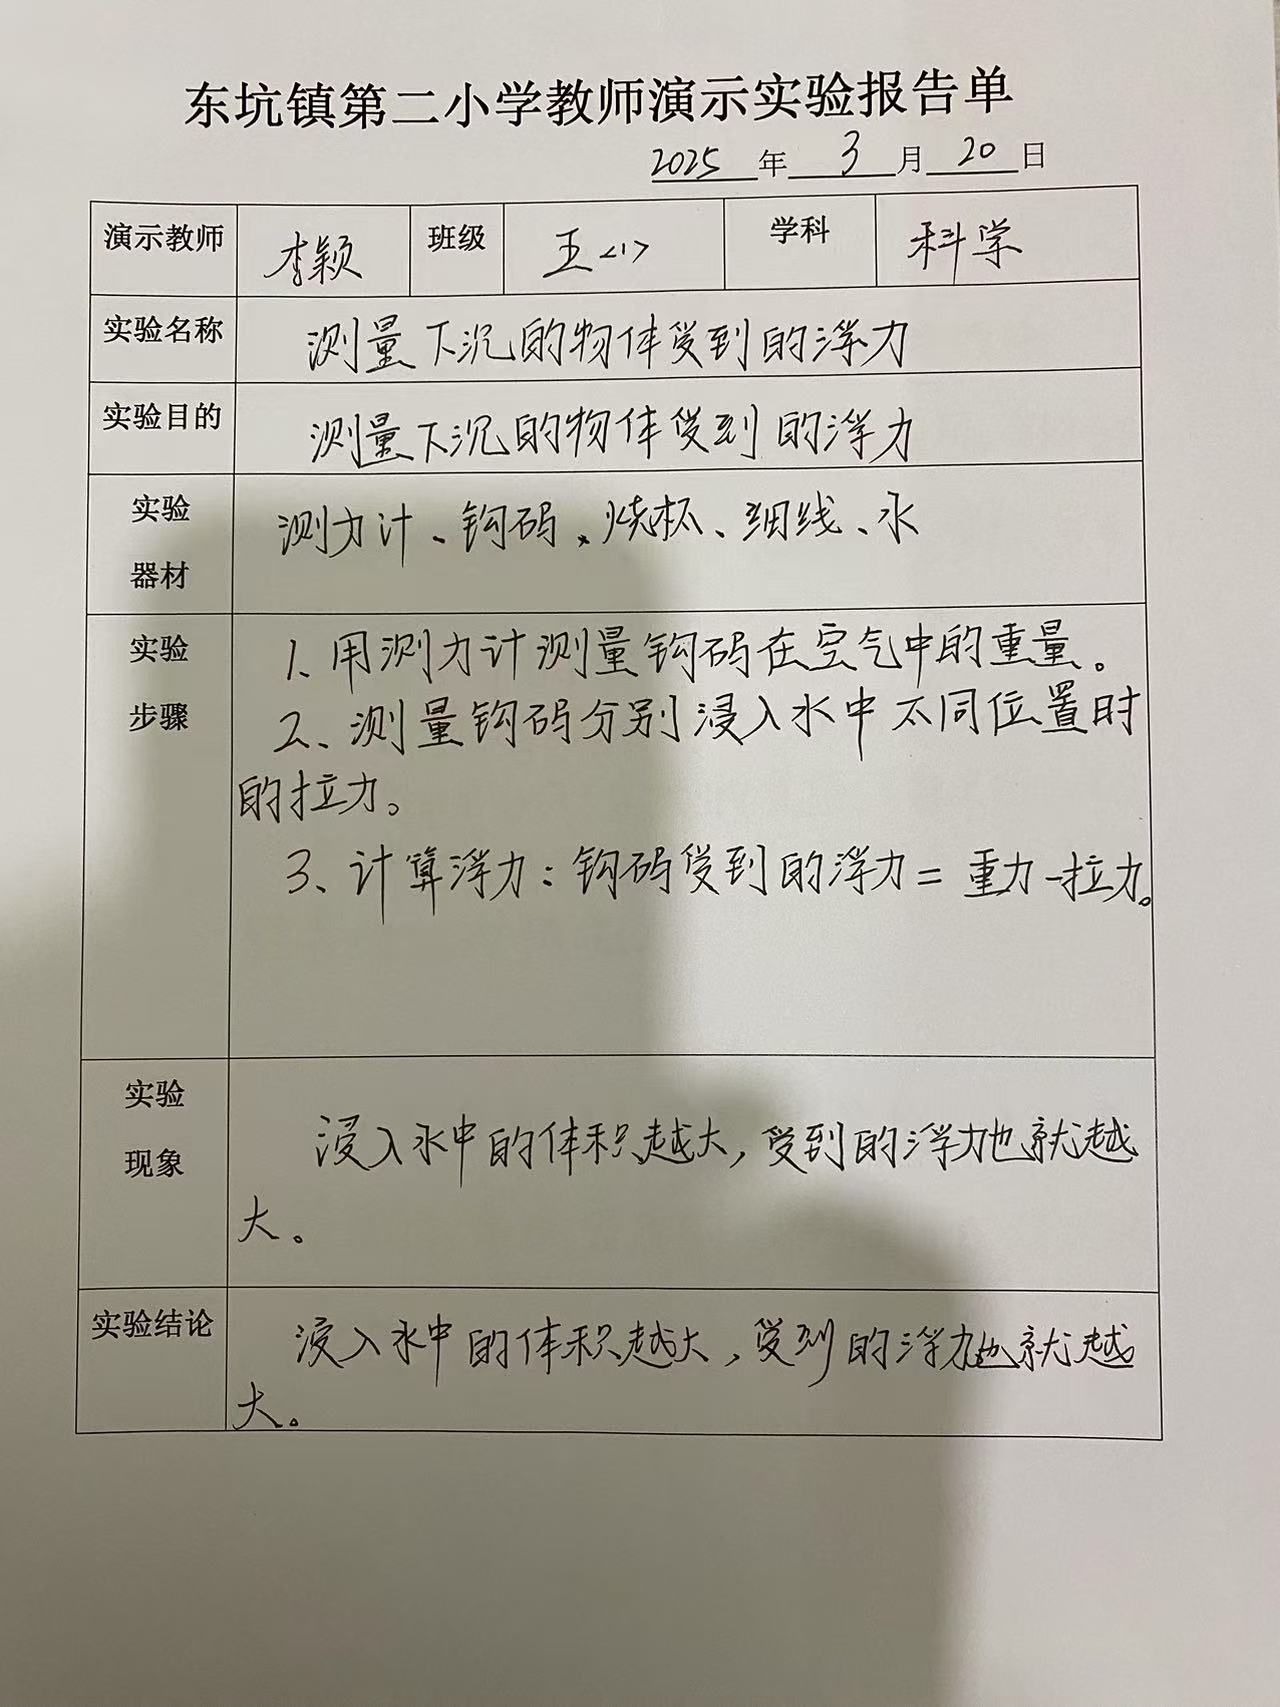 东坑镇第二小学教师演示实验报告单
2025 年 3 月 20 日
演示教师 李颖 班级 五<1> 学科 科学
实验名称 测量下沉的物体受到的浮力
实验目的 测量下沉的物体受到的浮力
实验 测力计、钩码、烧杯、细线、水
器材
实验 1、用测力计测量钩码在空气中的重量。
步骤 2、测量钩码分别浸入水中不同位置时
的拉力。
3、计算浮力:钩码受到的浮力=重力-拉力。
实验 浸入水中的体积越大,受到的浮力也就越
现象
大。
实验结论 浸入水中的体积越大,受到的浮力也就越
大。